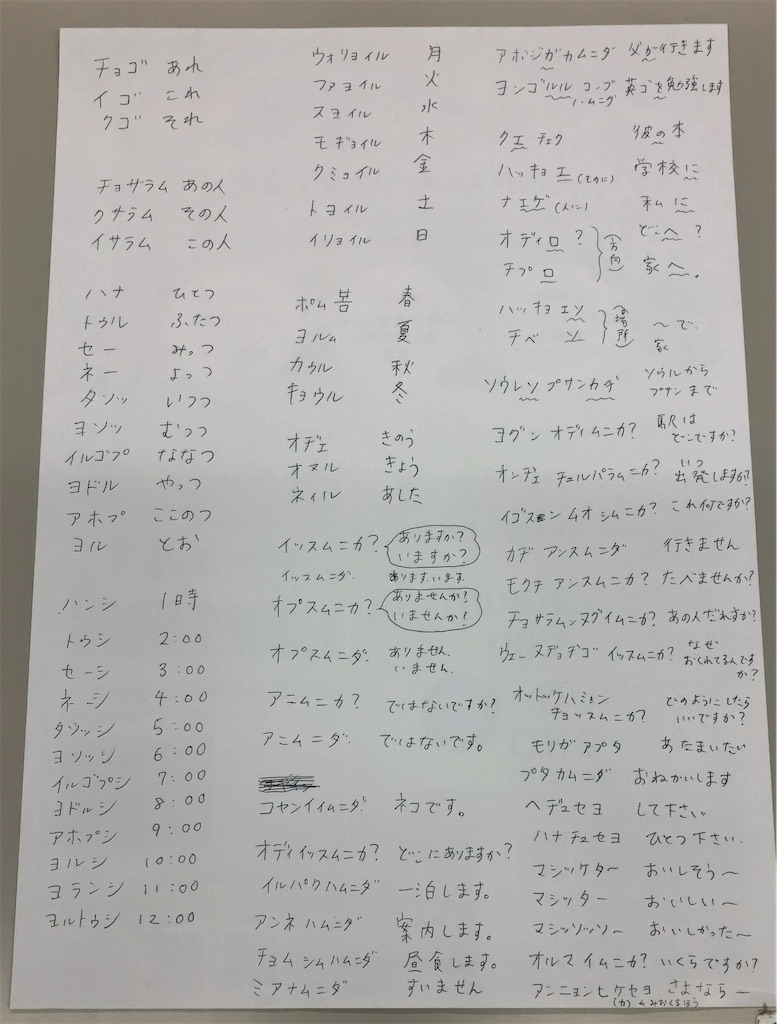 チョゴ あれ
イゴ これ
クゴ それ
チョサラム あの人
クサラム その人
イサラム この人
ハナ ひとつ
トゥル ふたつ
セー みっつ
ネー よっつ
タソッ いつつ
ヨソッ むっつ
イルゴプ ななつ
ヨドル やっつ
アホプ ここのつ
ヨル とお
ハンシ 1時
トウシ 2:00
セーシ 3:00
ネーシ 4:00
タソッシ 5:00
ヨソッシ 6:00
イルゴプシ 7:00
ヨドルシ 8:00
アホプシ 9:00
ヨルシ 10:00
ヨランシ 11:00
ヨルトゥシ 12:00
ウォリョイル 月
ファヨイル 火
スヨイル 水
モギョイル 木
クミョイル 金
トヨイル 土
イリョイル 日
ポム 봄 春
ヨルム 夏
カウル 秋
キョウル 冬
オヂェ きのう
オヌル きょう
ネイル あした
イッスムニカ? ありますか?
いますか?
イッスムニダ. あります.います.
オプスムニカ? ありませんか?
いませんか?
オプスムニダ. ありません.
いません.
アニムニカ? ではないですか?
アニムニダ. ではないです。
コヤンイイムニダ. ネコです。
オディイッスムニカ? どこにありますか?
イルパクハムニダ 一泊します。
アンネハムニダ 案内します。
チョムシムハムニダ 昼食します。
ミアナムニダ すいません
アボジガカムニダ 父が行きます
ヨンゴルル コンブ 英ゴを勉強します
ハムニダ
クエ チェク 彼の本
ハッキョエ(ものに) 学校に
ナエゲ(人に) 私に
オディロ? (方向) どこへ?
チプロ 家へ.
ハッキョエソ (場所) 〜で.
チベソ 家
ソウレソプサンカヂ ソウルから
プサンまで
ヨグン オディムニカ? 駅は
どこですか?
オンヂェ チュルパラムニカ? いつ
出発しますか?
イゴスン ムオシムニカ? これ何ですか?
カヂ アンスムニダ 行きません
モクチ アンスムニカ? たべませんか?
チョサラムンヌグイムニカ? あの人だれですか?
ウェー ヌヂョヂゴ イッスムニカ? なぜ
おくれてるんです
か?
オットッケハミョン どのようにしたら
チョッスムニカ? いいですか?
モリガアプタ あたまいたい
プタカムニダ おねがいします
ヘヂュセヨ して下さい
ハナチュセヨ ひとつ下さい.
マシッケタ〜 おいしそう〜
マシッター おいしい〜
マシッソッソ〜 おいしかった〜
オルマイムニカ? いくらですか?
アンニョンヒケセヨ さよなら〜